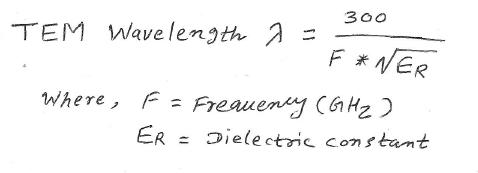 TEM Wavelength λ = 300 / F * √ER
Where, F = Freauency (GHz)
ER = Dielectric constant